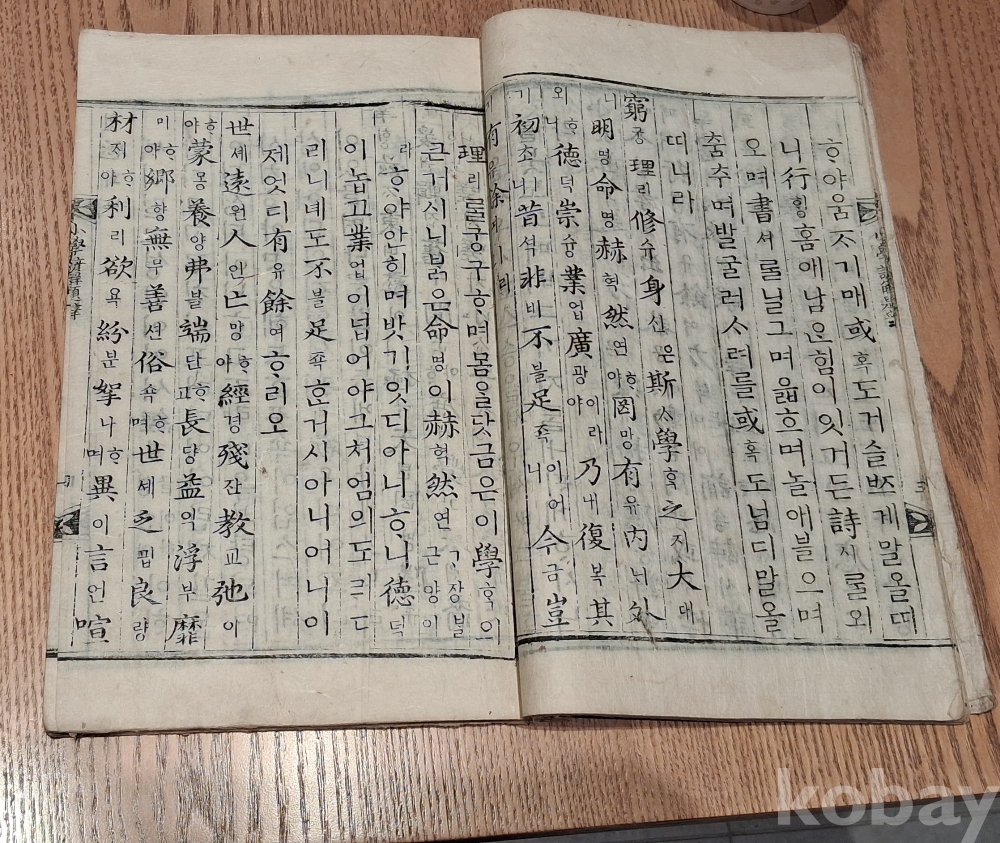 ᄒᆞ야움ᄌᆞ기매或혹도거슬ᄧᅳ게말올띠
니行ᄒᆡᆼ홈애남ᄋᆞᆫ힘이잇거든詩시ᄅᆞᆯ외
오며書셔ᄅᆞᆯ닐그며읇흐며놀애브ᄅᆞ며
춤추며발굴러ᄉᆞ려를或혹도넘디말올
띠니라
窮궁理리修슈身신은斯ᄉᆞ學ᄒᆞᆨ之지大대
니明명命명赫혁然연ᄒᆞ야罔망有유內ᄂᆡ外
외니德덕崇슝業업廣광ᄒᆞ야이라乃내復복其
기初초ㅣ니昔셕非비不블足죡이어니今금豈
기有유餘여ㅣ리
理리ᄅᆞᆯ궁구ᄒᆞ며몸을닷금은이學ᄒᆞᆨ의
큰거시니ᄇᆞᆰ은命명이赫혁然연ᄀᆞ장ᄇᆞᆯ근양이
라ᄒᆞ야안히며밧기잇디아니ᄒᆞ니德덕
이놉고業업이넙어야그처엄의도
리니녜도不블足죡ᄒᆞᆫ거시아니어니이
제엇디有유餘여ᄒᆞ리오
世셰遠원人인亡망ᄒᆞ야經경殘잔教교弛이
ᄒᆞ야蒙몽養양弗블端단ᄒᆞ고長댱益익浮부靡
미ᄒᆞ야鄉향無무善션俗쇽ᄒᆞ며世셰乏핍良량
材ᄌᆡᄒᆞ야利리欲욕紛분拏나ᄒᆞ며異이言언喧
kobay